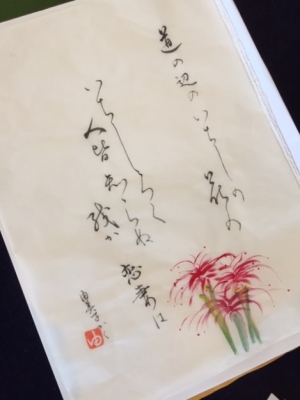 道の辺の いちしの 花の
いちしろく
人皆 我が
恋妻は